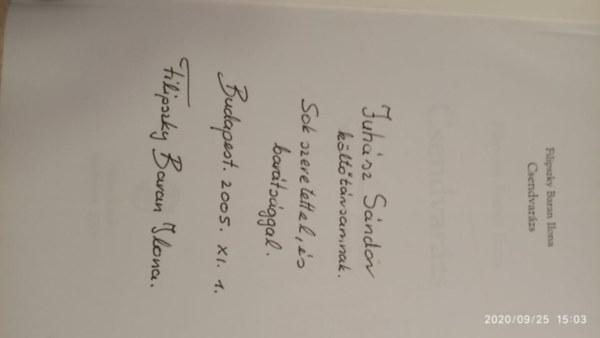 Filipszky Baran Ilona
Csendvarázs
Juhász Sándor
költőtársamnak.
Sok szeretettel, és
barátsággal.
Budapest. 2005. XI. 1.
Filipszky Baran Ilona.
2020/09/25 15:03